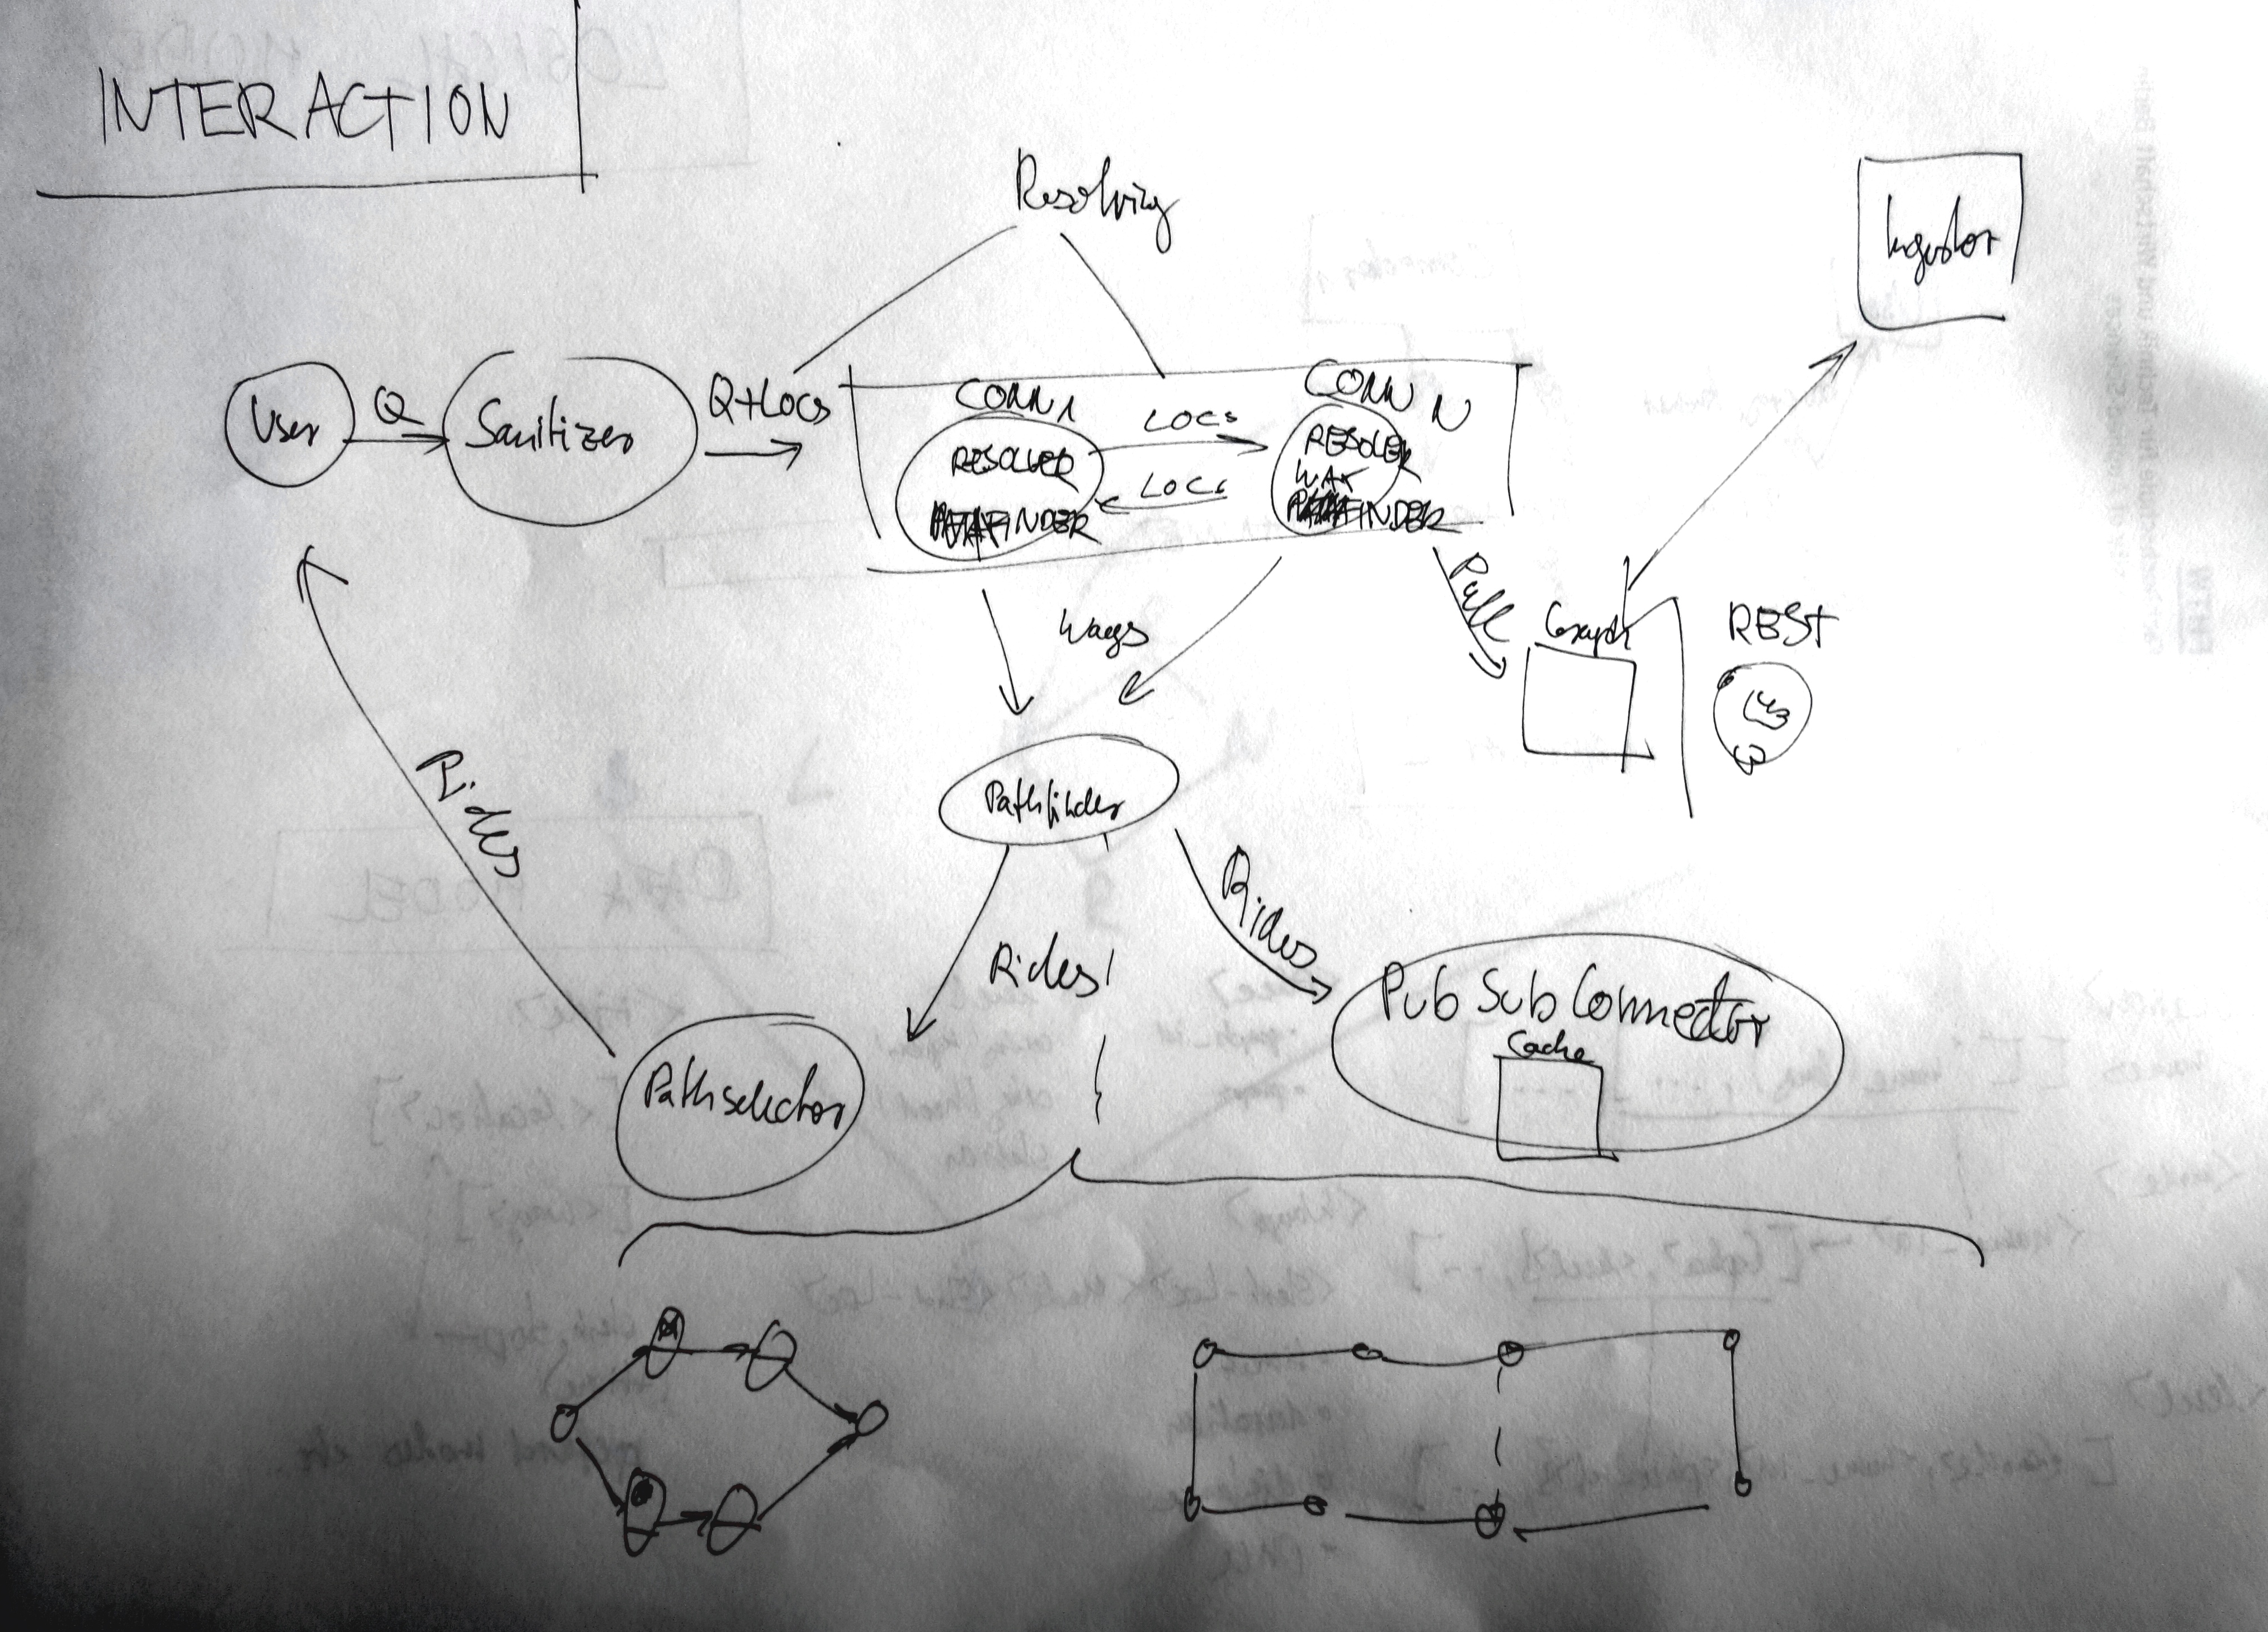 INTERACTION
Resolving
Ingestor
User
Q
Sanitizer
Q+Locs
CONN 1
RESOLVER
FINDER
LOCS
LOCS
CONN N
RESOLER
WAY
FINDER
Pull
Graph
REST
Ways
Pathfinder
Rides
Rides
Rides
Pathselector
Pub Sub Connector
Cache